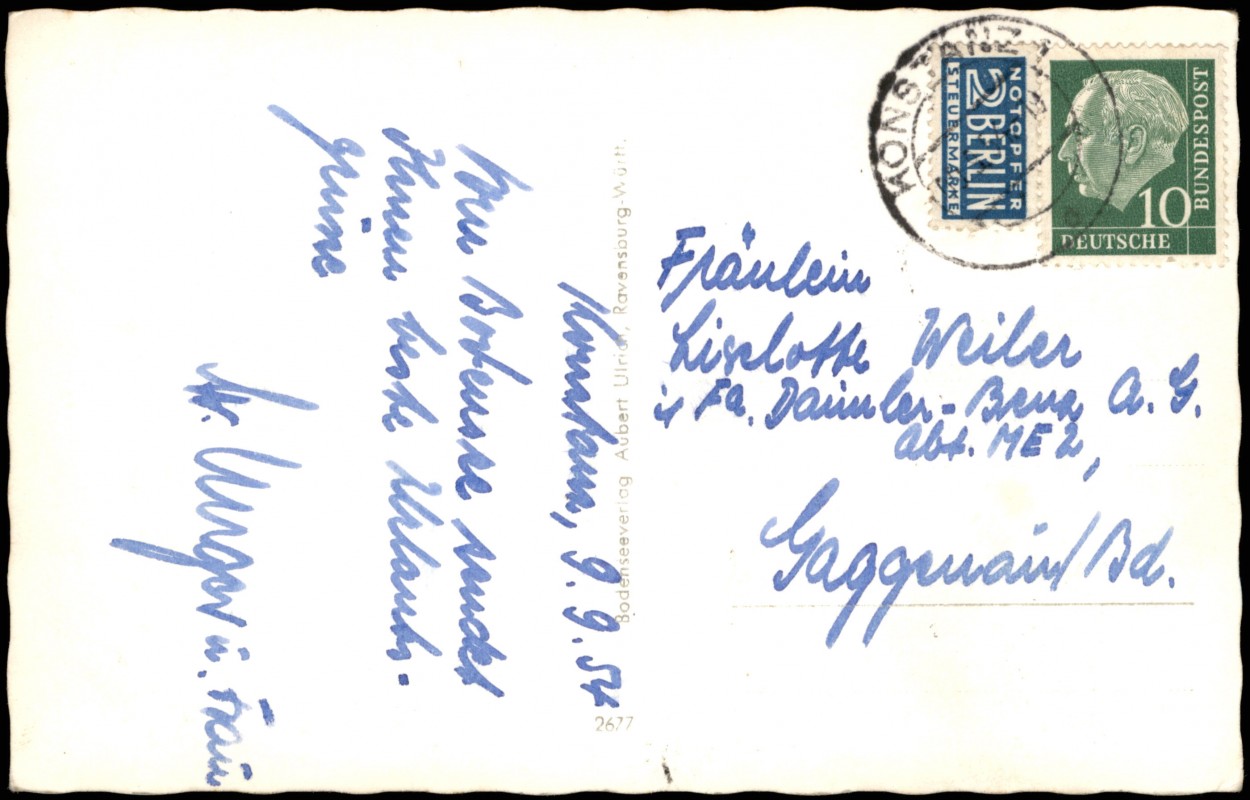 Konstanz, 9.9.54
Vom Bodensee sendet
Ihnen beste Urlaubs-
grüsse
u. Frau
Bodenseeverlag Aubert Ulrich, Ravensburg-Württ.
2677
KONSTANZ
NOTOPFER
2 BERLIN
STEUERMARKE
10
DEUTSCHE
BUNDESPOST
Fräulein
Liselotte Weiler
Fa. Daimler-Benz A.G.
Abt. ME2,
Gaggenau/Bd.